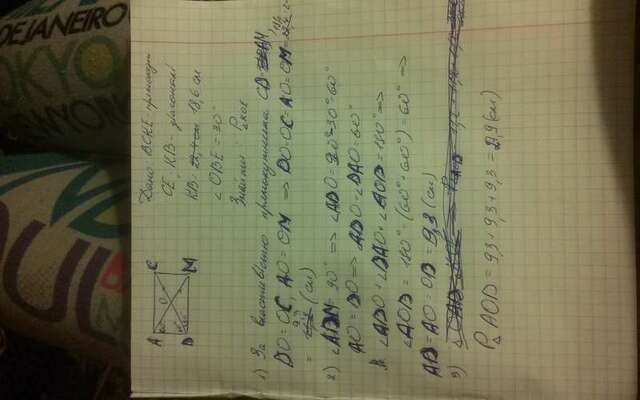 DEJANEIRO
TOKYO
Дано: BCKE прямокутн
CE, KB - діагоналі
KB = 18,6 см
∠OBE = 30°
Знайти: P
A C
O
D M
1) За властивістю прямокутника CD = AM,
DO = OC, AO = OM ⇒ DO = OC = AO = OM =
= 9,3 (см)
2) ∠ADM = 90° ⇒ ∠ADO = 90° - 30° = 60°
AO = DO ⇒ ∠ADO = ∠DAO = 60°
∠ADO + ∠DAO + ∠AOD = 180° ⇒
∠AOD = 180° - (60° + 60°) = 60° ⇒
AD = AO = OD = 9,3 (см)
3)
P△AOD = 9,3 + 9,3 + 9,3 = 27,9 (см)